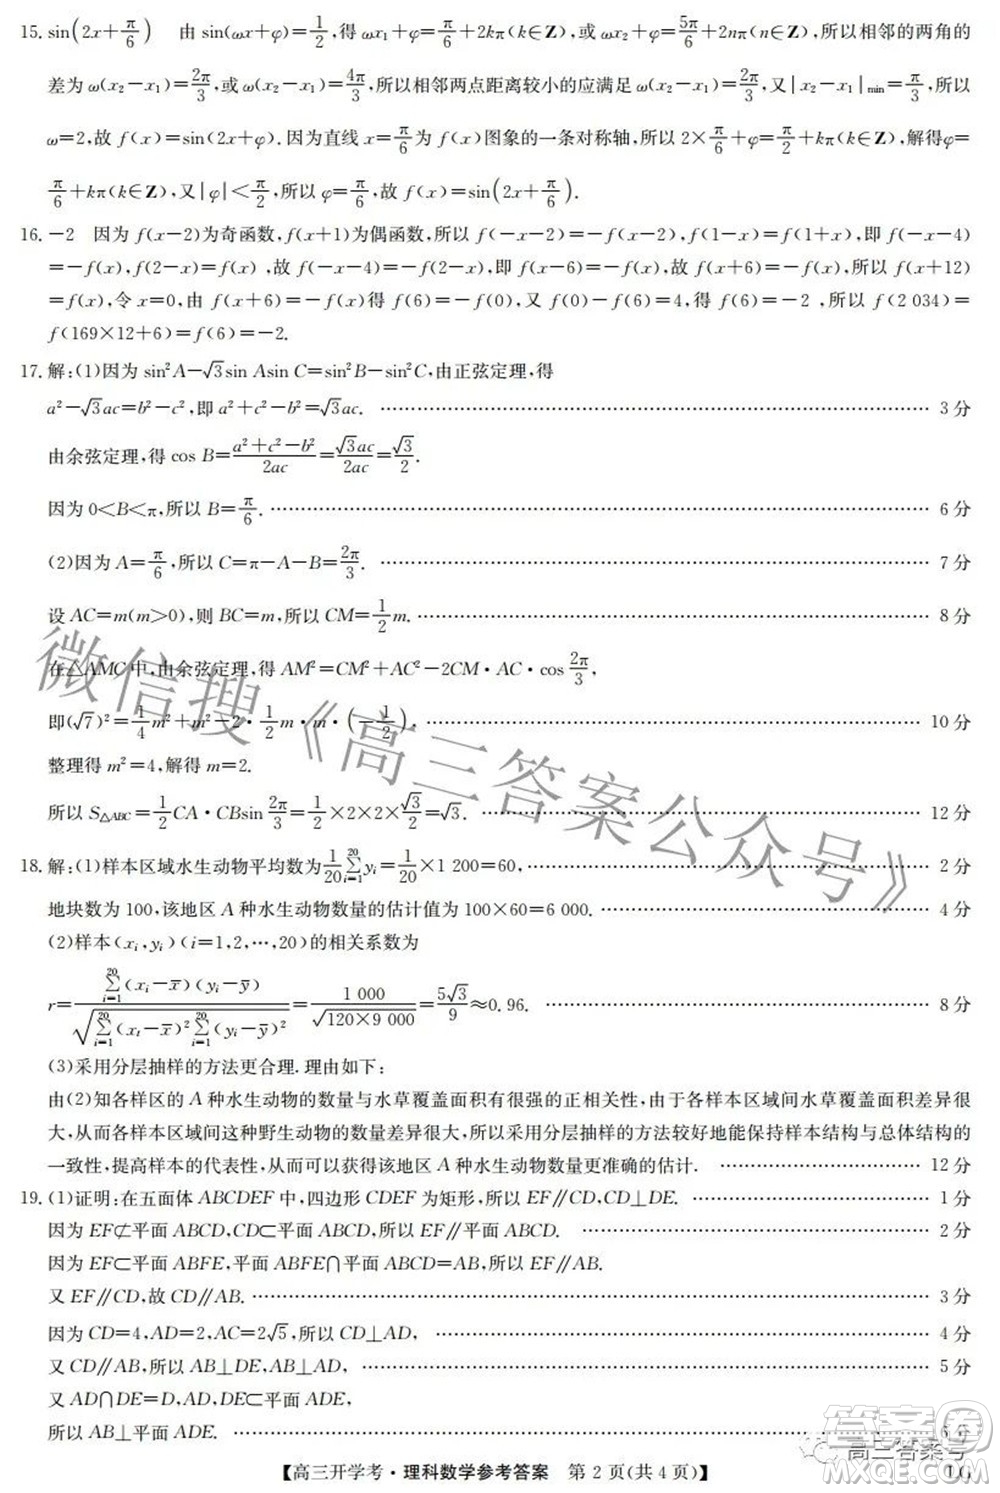 15. sin(2x+π/6)　由 sin(ωx+φ)=1/2,得 ωx₁+φ=π/6+2kπ(k∈Z),或 ωx₂+φ=5π/6+2nπ(n∈Z),所以相邻的两角的
差为 ω(x₂−x₁)=2π/3,或 ω(x₂−x₁)=4π/3,所以相邻两点距离较小的应满足 ω(x₂−x₁)=2π/3,又|x₂−x₁|min=π/3,所以
ω=2,故 f(x)=sin(2x+φ).因为直线 x=π/6为 f(x)图象的一条对称轴,所以 2×π/6+φ=π/2+kπ(k∈Z),解得φ=
π/6+kπ(k∈Z),又|φ|<π/2,所以 φ=π/6,故 f(x)=sin(2x+π/6).
16. −2　因为 f(x−2)为奇函数,f(x+1)为偶函数,所以 f(−x−2)=−f(x−2),f(1−x)=f(1+x),即 f(−x−4)
=−f(x),f(2−x)=f(x) ,故 f(−x−4)=−f(2−x),即 f(x−6)=−f(x),故 f(x+6)=−f(x),所以 f(x+12)
=f(x),令 x=0,由 f(x+6)=−f(x)得 f(6)=−f(0),又 f(0)−f(6)=4,得 f(6)=−2 ,所以 f(2 034)=
f(169×12+6)=f(6)=−2.
17. 解:(1)因为 sin²A−√3sin Asin C=sin²B−sin²C,由正弦定理,得
a²−√3ac=b²−c²,即 a²+c²−b²=√3ac. …… 3 分
由余弦定理,得 cos B=(a²+c²−b²)/2ac=√3ac/2ac=√3/2.
因为 0<B<π,所以 B=π/6. …… 6 分
(2)因为 A=π/6,所以 C=π−A−B=2π/3. …… 7 分
设 AC=m(m>0),则 BC=m,所以 CM=1/2m. …… 8 分
在△AMC 中,由余弦定理,得 AM²=CM²+AC²−2CM·AC·cos 2π/3,
即(√7)²=1/4m²+m²−2·1/2m·m·(−1/2). …… 10 分
整理得 m²=4,解得 m=2.
所以 S△ABC=1/2CA·CBsin 2π/3=1/2×2×2×√3/2=√3. …… 12 分
18. 解:(1)样本区域水生动物平均数为1/20 ∑(i=1→20) yᵢ=1/20×1 200=60, …… 2 分
地块数为 100,该地区 A 种水生动物数量的估计值为 100×60=6 000. …… 4 分
(2)样本(xᵢ,yᵢ)(i=1,2,…,20)的相关系数为
r=∑(i=1→20)(xᵢ−x̄)(yᵢ−ȳ)/√(∑(i=1→20)(xᵢ−x̄)²∑(i=1→20)(yᵢ−ȳ)²)=1 000/√(120×9 000)=5√3/9≈0.96. …… 8 分
(3)采用分层抽样的方法更合理. 理由如下:
由(2)知各样区的 A 种水生动物的数量与水草覆盖面积有很强的正相关性,由于各样本区域间水草覆盖面积差异很
大,从而样本区域间这种野生动物的数量差异很大,所以采用分层抽样的方法较好地能保持样本结构与总体结构的
一致性,提高样本的代表性,从而可以获得该地区 A 种水生动物数量更准确的估计. …… 12 分
19. (1)证明:在五面体 ABCDEF 中,四边形 CDEF 为矩形,所以 EF∥CD,CD⊥DE. …… 1 分
因为 EF⊄平面 ABCD,CD⊂平面 ABCD,所以 EF∥平面 ABCD. …… 2 分
因为 EF⊂平面 ABFE,平面 ABFE∩平面 ABCD=AB,所以 EF∥AB.
又 EF∥CD,故 CD∥AB. …… 3 分
因为 CD=4,AD=2,AC=2√5,所以 CD⊥AD, …… 4 分
又 CD∥AB,所以 AB⊥DE,AB⊥AD, …… 5 分
又 AD∩DE=D,AD,DE⊂平面 ADE,
所以 AB⊥平面 ADE. …… 6 分
【高三开学考·理科数学参考答案　第 2 页(共 4 页)】
微信搜《高三答案公众号》
高三答案号
答案圈
MXQE.COM